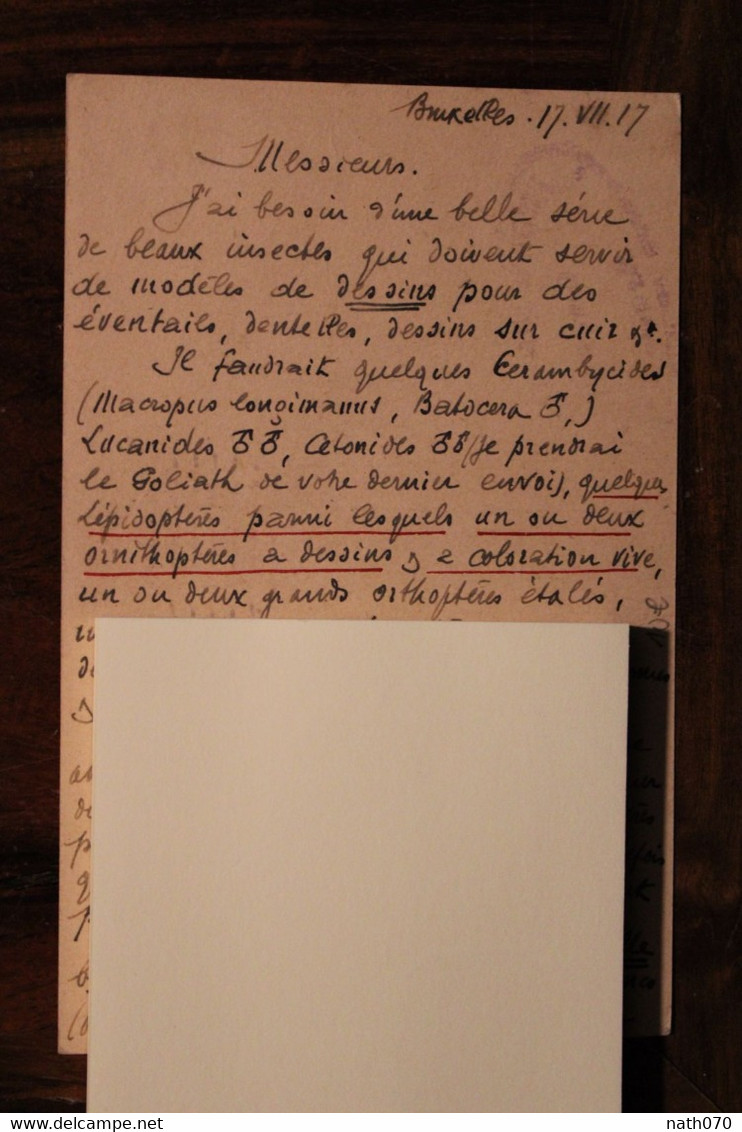 Bruxelles. 17.VII.17
Messieurs.
J'ai besoin d'une belle série
de beaux insectes qui doivent servir
de modèles de dessins pour des
éventails, dentelles, dessins sur cuir &a.
Il faudrait quelques Cerambycides
(Macropus longimanus, Batocera ♂,)
Lucanides ♂♂, Cetonides ♂♂ (je prendrai
le Goliath de votre dernier envoi), quelques
Lépidoptères parmi lesquels un ou deux
ornithoptères a dessins & a coloration vive,
un ou deux grands orthoptères étalés,
nath070